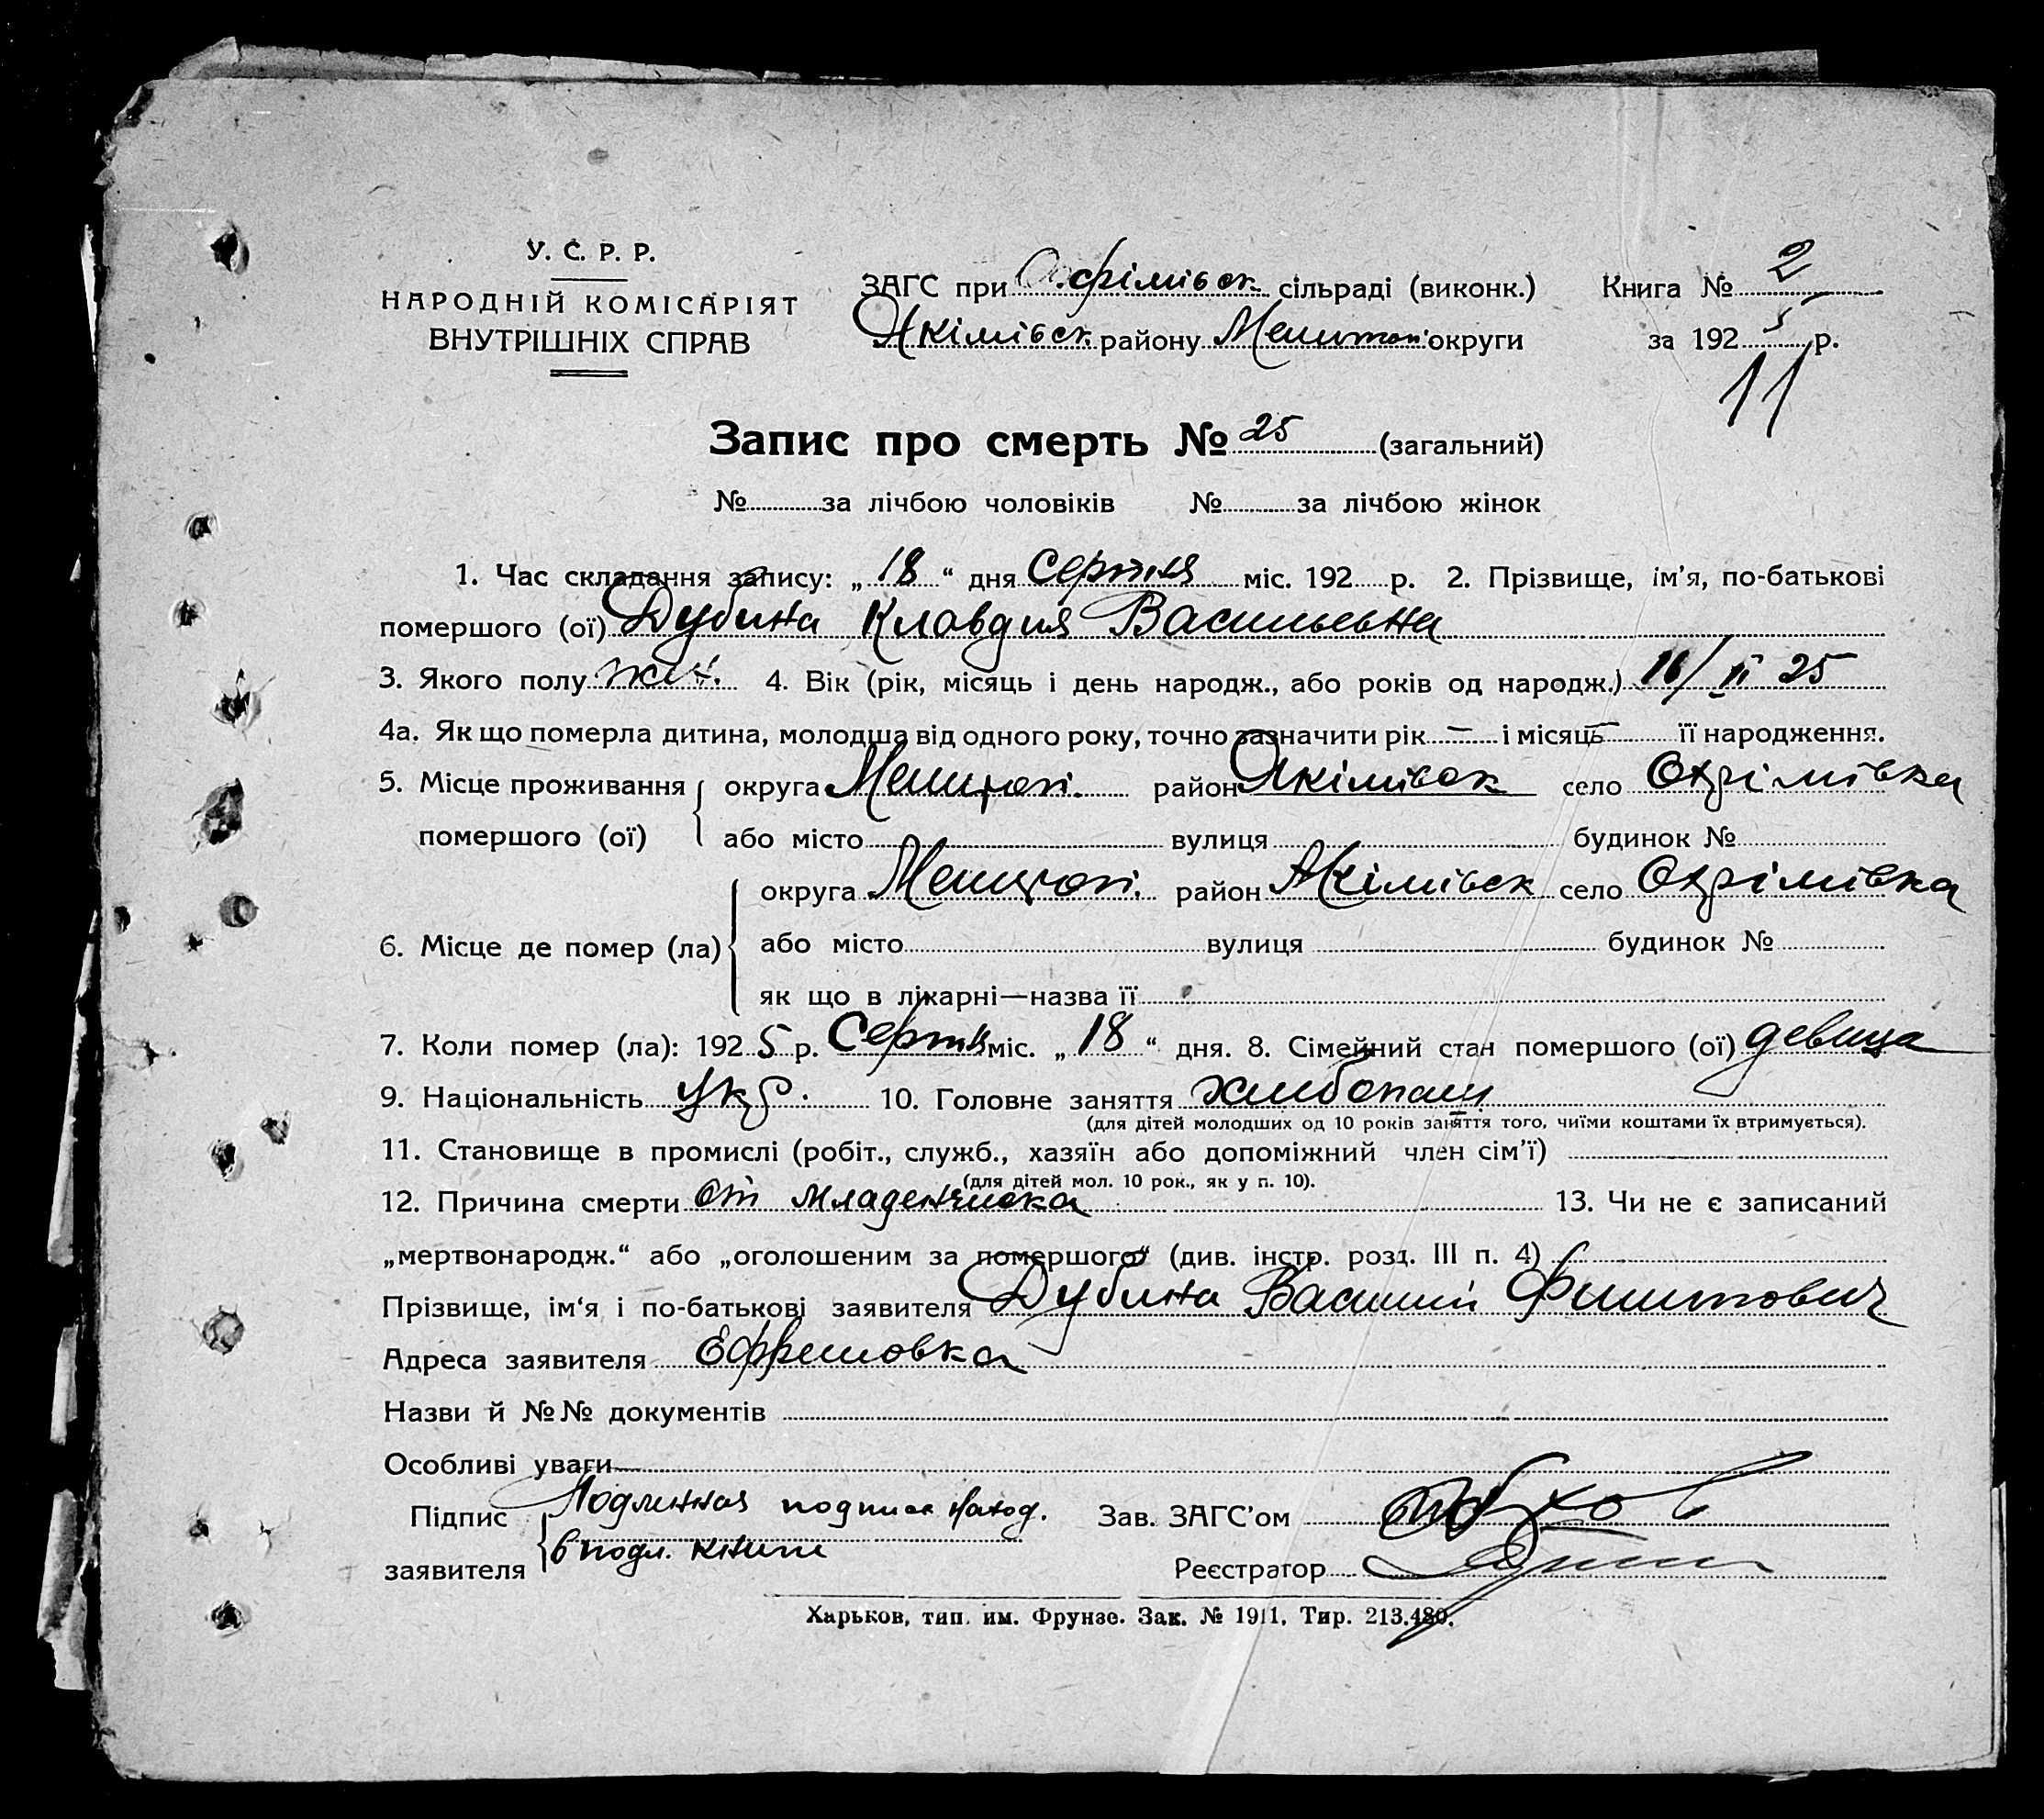 У. С. Р. Р.
НАРОДНІЙ КОМІСАРІЯТ
ВНУТРІШНІХ СПРАВ
ЗАГС при сільраді (виконк.) Книга № 2
Якімівськ району Мелитоп округи за 1925 р.
11
Запис про смерть № 25 (загальний)
№ за лічбою чоловіків № за лічбою жінок
1. Час складання запису: „18“ дня Серпня міс. 192 р. 2. Прізвище, ім’я, по-батькові
помершого (ої) Дубина Клавдия Васильевна
3. Якого полу жін. 4. Вік (рік, місяць і день народж., або років од народж.) 16/II 25
4а. Як що померла дитина, молодша від одного року, точно зазначити рік — і місяць — її народження.
5. Місце проживання округа Мелитоп. район Якімівськ село Охрімівка
помершого (ої) або місто вулиця будинок №
округа Мелитоп. район Якімівськ село Охрімівка
6. Місце де помер (ла) або місто вулиця будинок №
як що в лікарні—назва її
7. Коли помер (ла): 1925 р. Серпня міс. „18“ дня. 8. Сімейний стан помершого (ої) девица
9. Національність укр. 10. Головне заняття хлибопаш
(для дітей молодших од 10 років заняття того, чиїми коштами їх втримується).
11. Становище в промислі (робіт., служб., хазяїн або допоміжний член сім’ї)
(для дітей мол. 10 рок., як у п. 10).
12. Причина смерти от младенчиска 13. Чи не є записаний
„мертвонародж.“ або „оголошеним за помершого“ (див. інстр. розд. III п. 4)
Прізвище, ім‘я і по-батькові заявителя Дубина Василий Филитович
Адреса заявителя Ефремовка
Назви й №№ документів
Особливі уваги
Підпис Подлинная подпись наход. Зав. ЗАГС’ом
заявителя в подл. книге Реєстратор
Харьков, тип. им. Фрунзе. Зак. № 1911, Тир. 213.480.